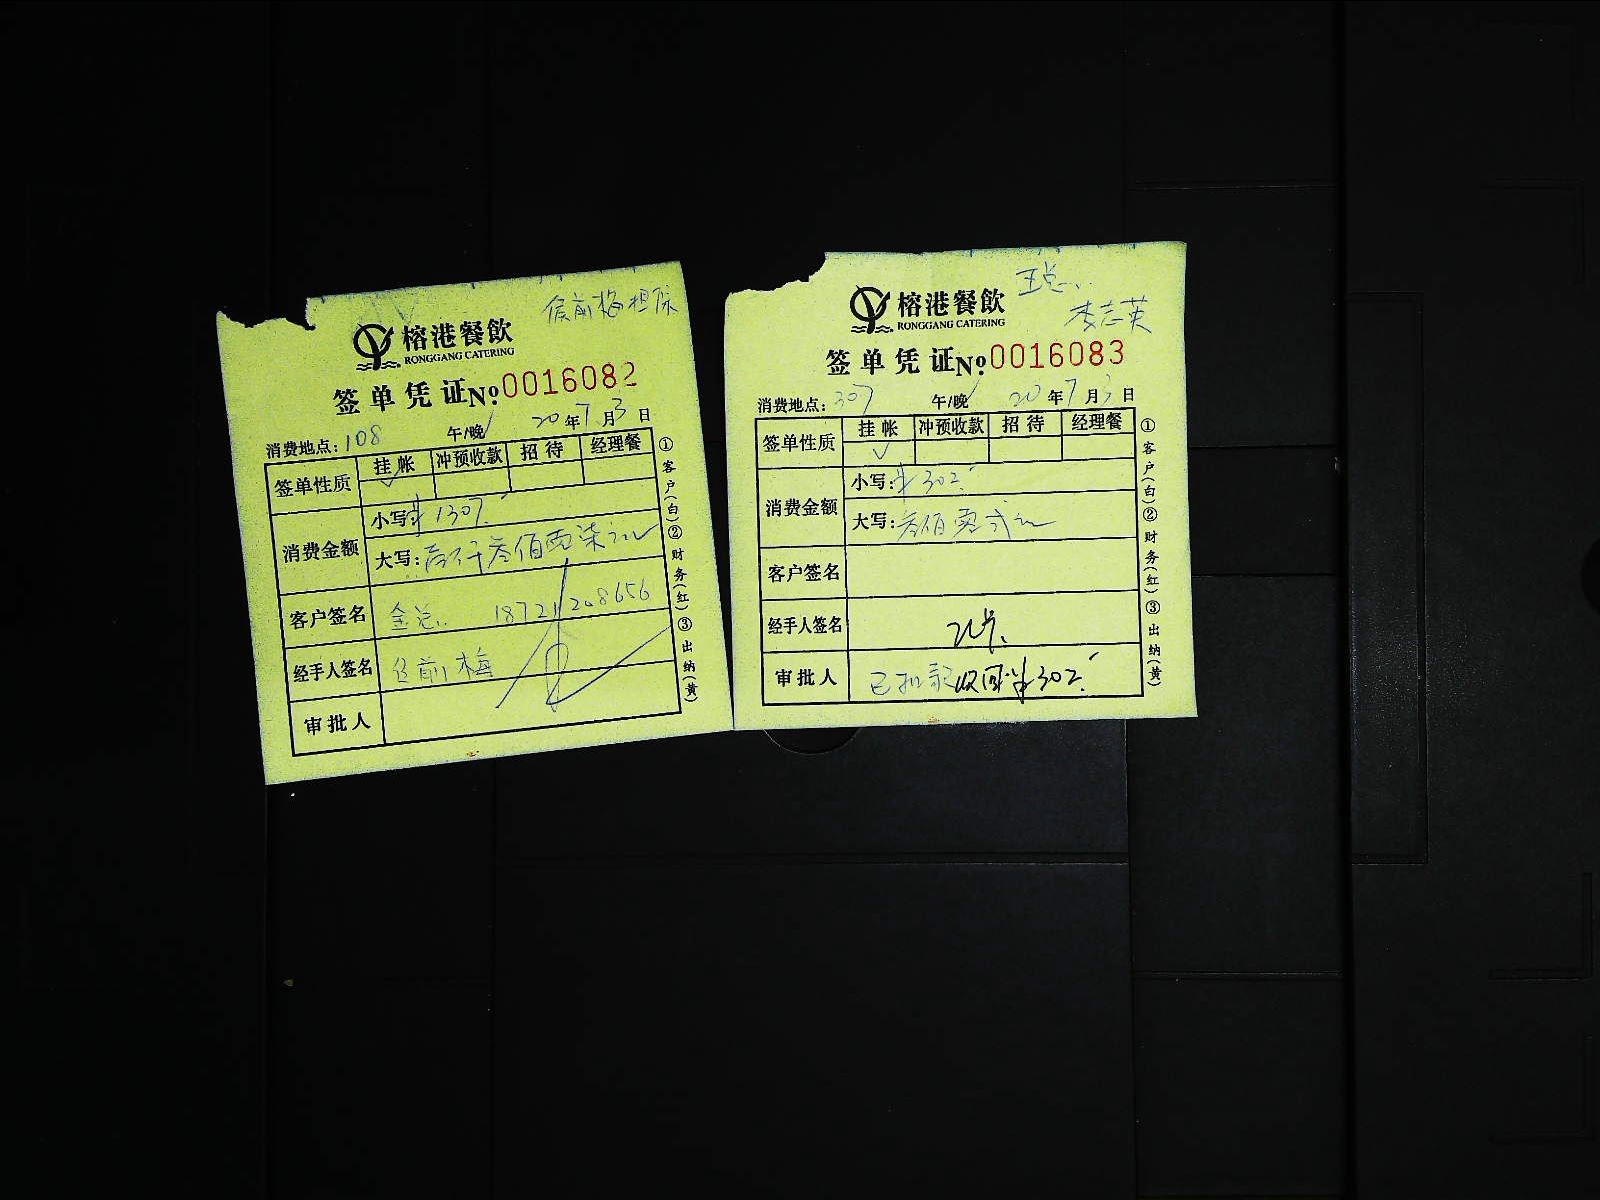 侯前梅担保
榕港餐飲
RONGGANG CATERING
签单凭证 No 0016082
消费地点: 108 午/晚 20年7月3日
签单性质 挂帐 冲预收款 招待 经理餐
✓
消费金额 小写: ¥1307.
大写: 叁佰零柒元
客户签名 金总 18721208656
经手人签名 前梅
审批人
①客户(白)②财务(红)③出纳(黄)
王总
李志英
榕港餐飲
RONGGANG CATERING
签单凭证 No 0016083
消费地点: 307 午/晚 20年7月3日
签单性质 挂帐 冲预收款 招待 经理餐
✓
消费金额 小写: ¥302.
大写: 叁佰零贰元
客户签名
经手人签名
审批人 已扣款收回¥302.
①客户(白)②财务(红)③出纳(黄)